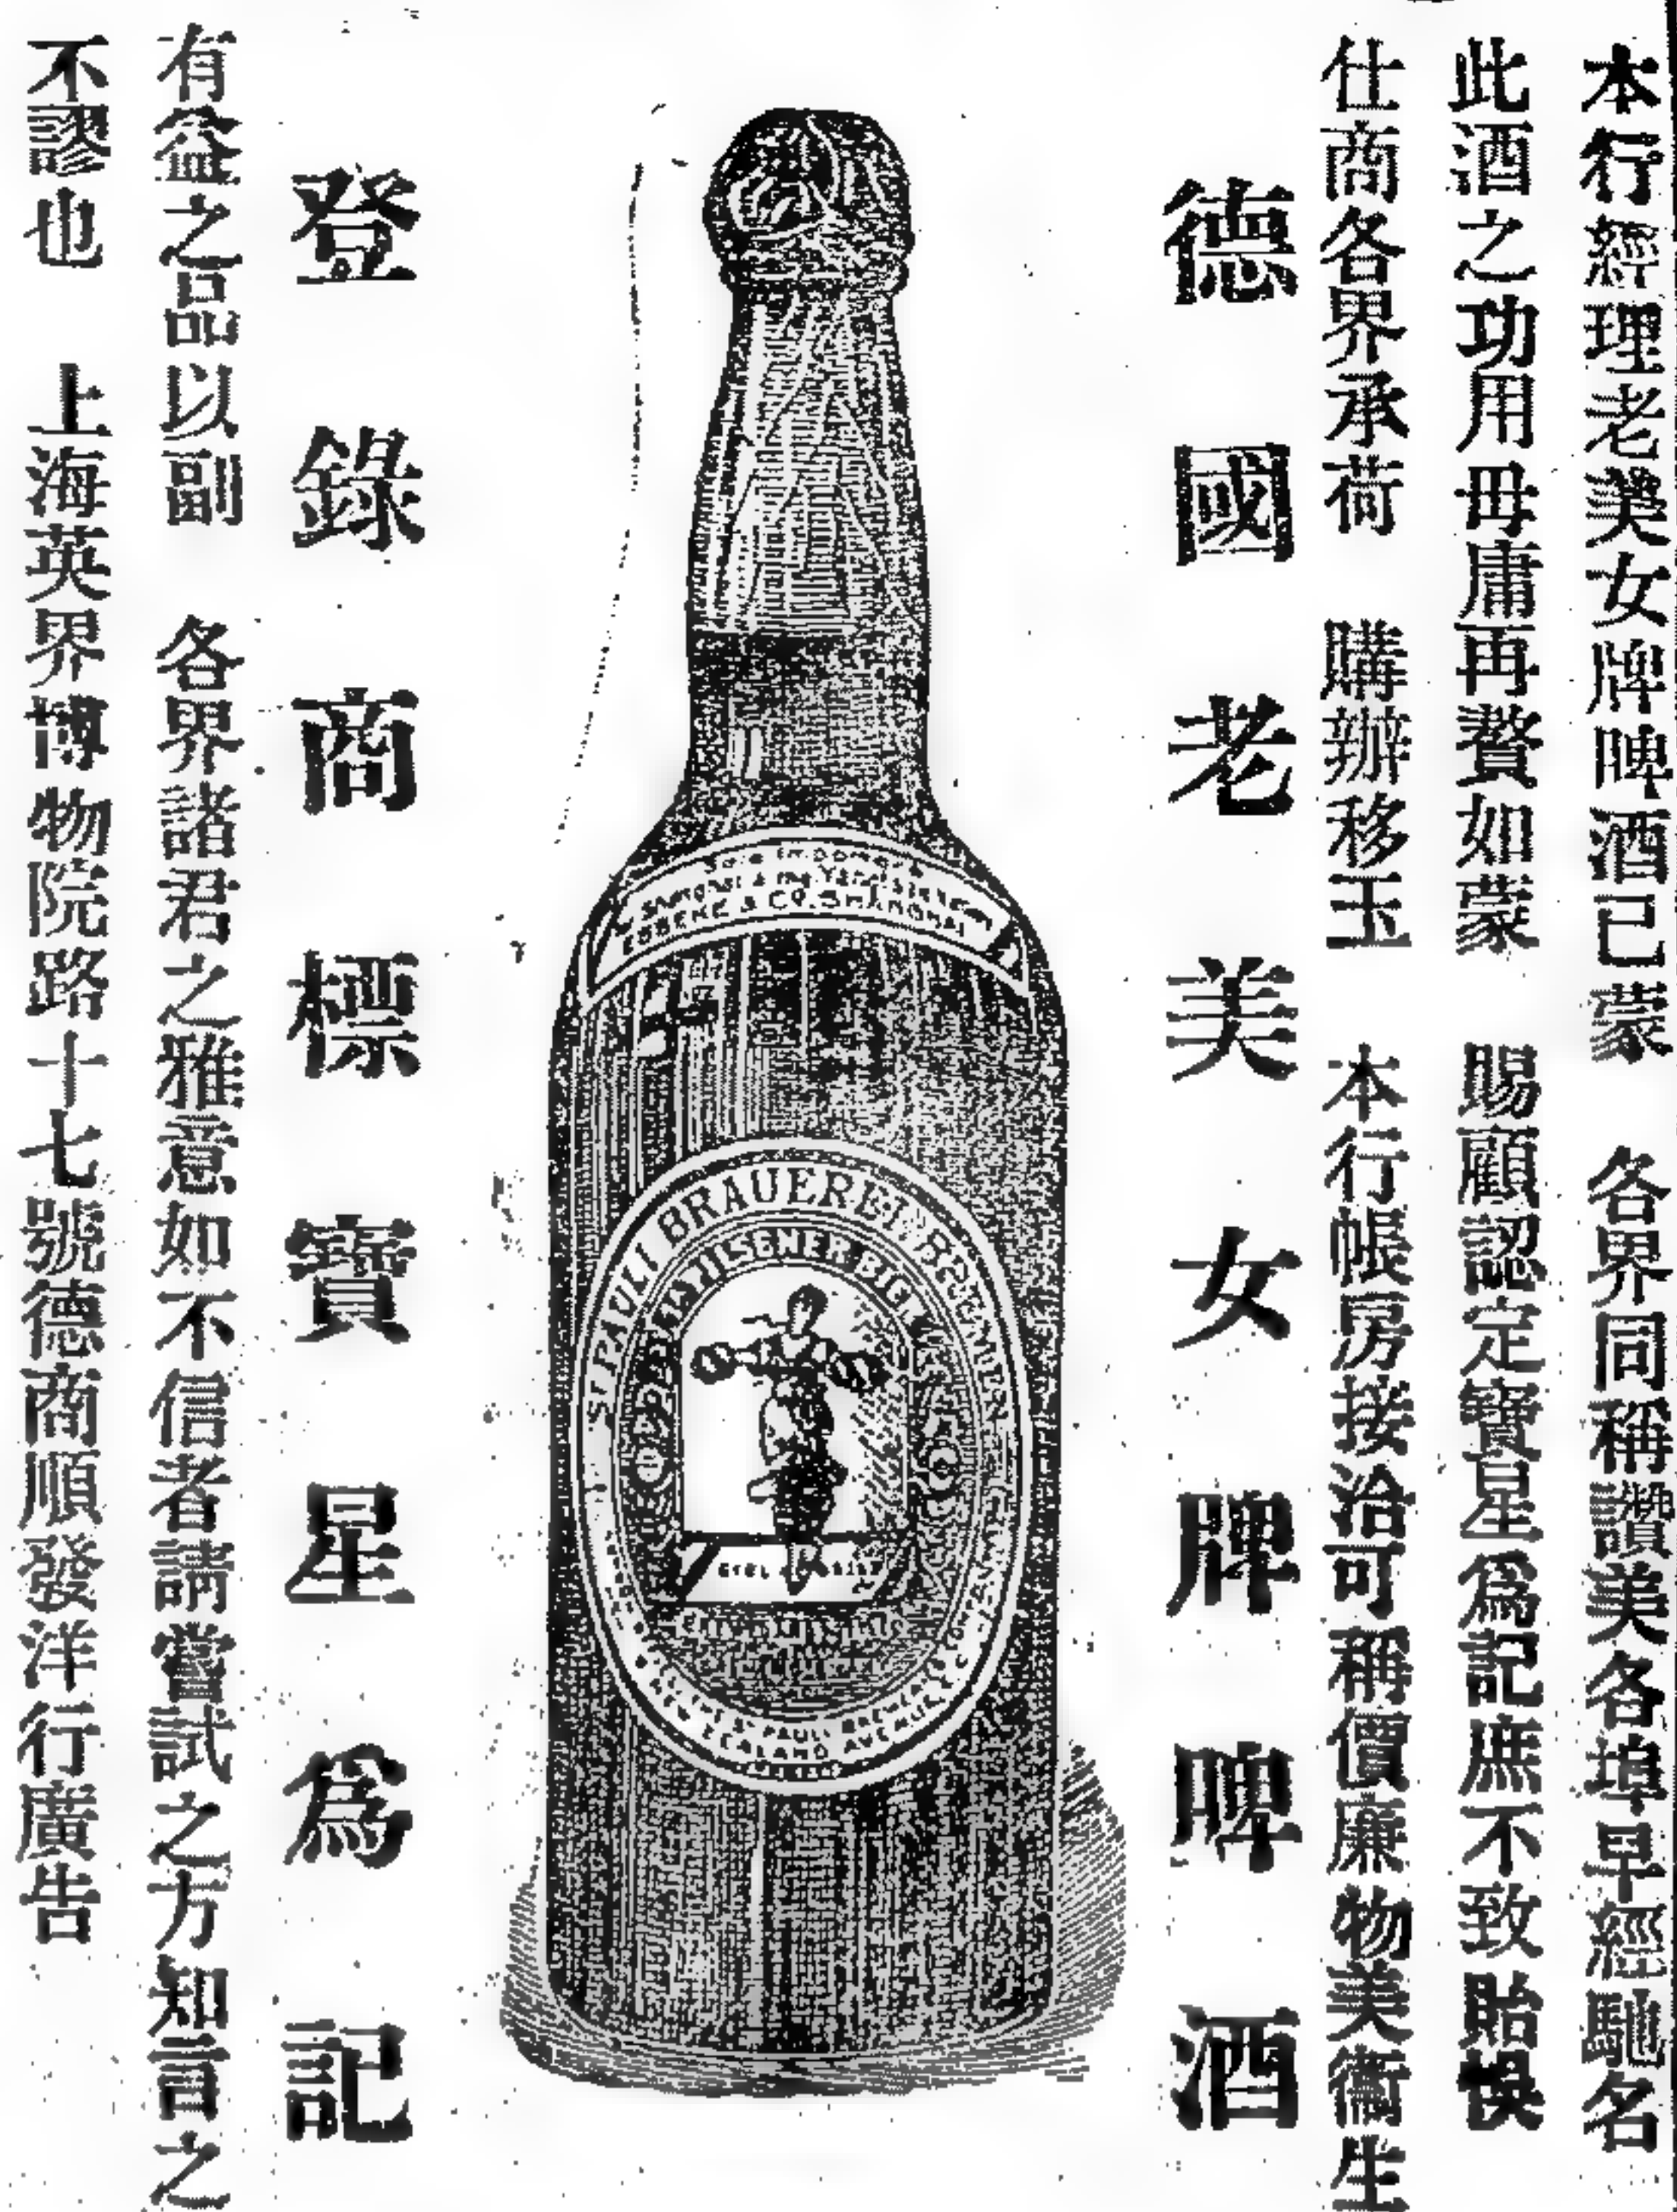 本行經理老美女牌啤酒已蒙　各界同稱讚美各埠早經馳名
此酒之功用毋庸再贅如蒙　賜顧認定寶星爲記庶不致貽悞
仕商各界承荷　購辦移玉　本行帳房接洽可稱價廉物美衞生
德國老美女牌啤酒
SHANGHAI
ST PAULI BRAUEREI BREMEN
ST PAULI BREWERY
登錄商標寶星爲記
有益之品以副　各界諸君之雅意如不信者請嘗試之方知言之
不謬也　上海英界博物院路十七號德商順發洋行廣告